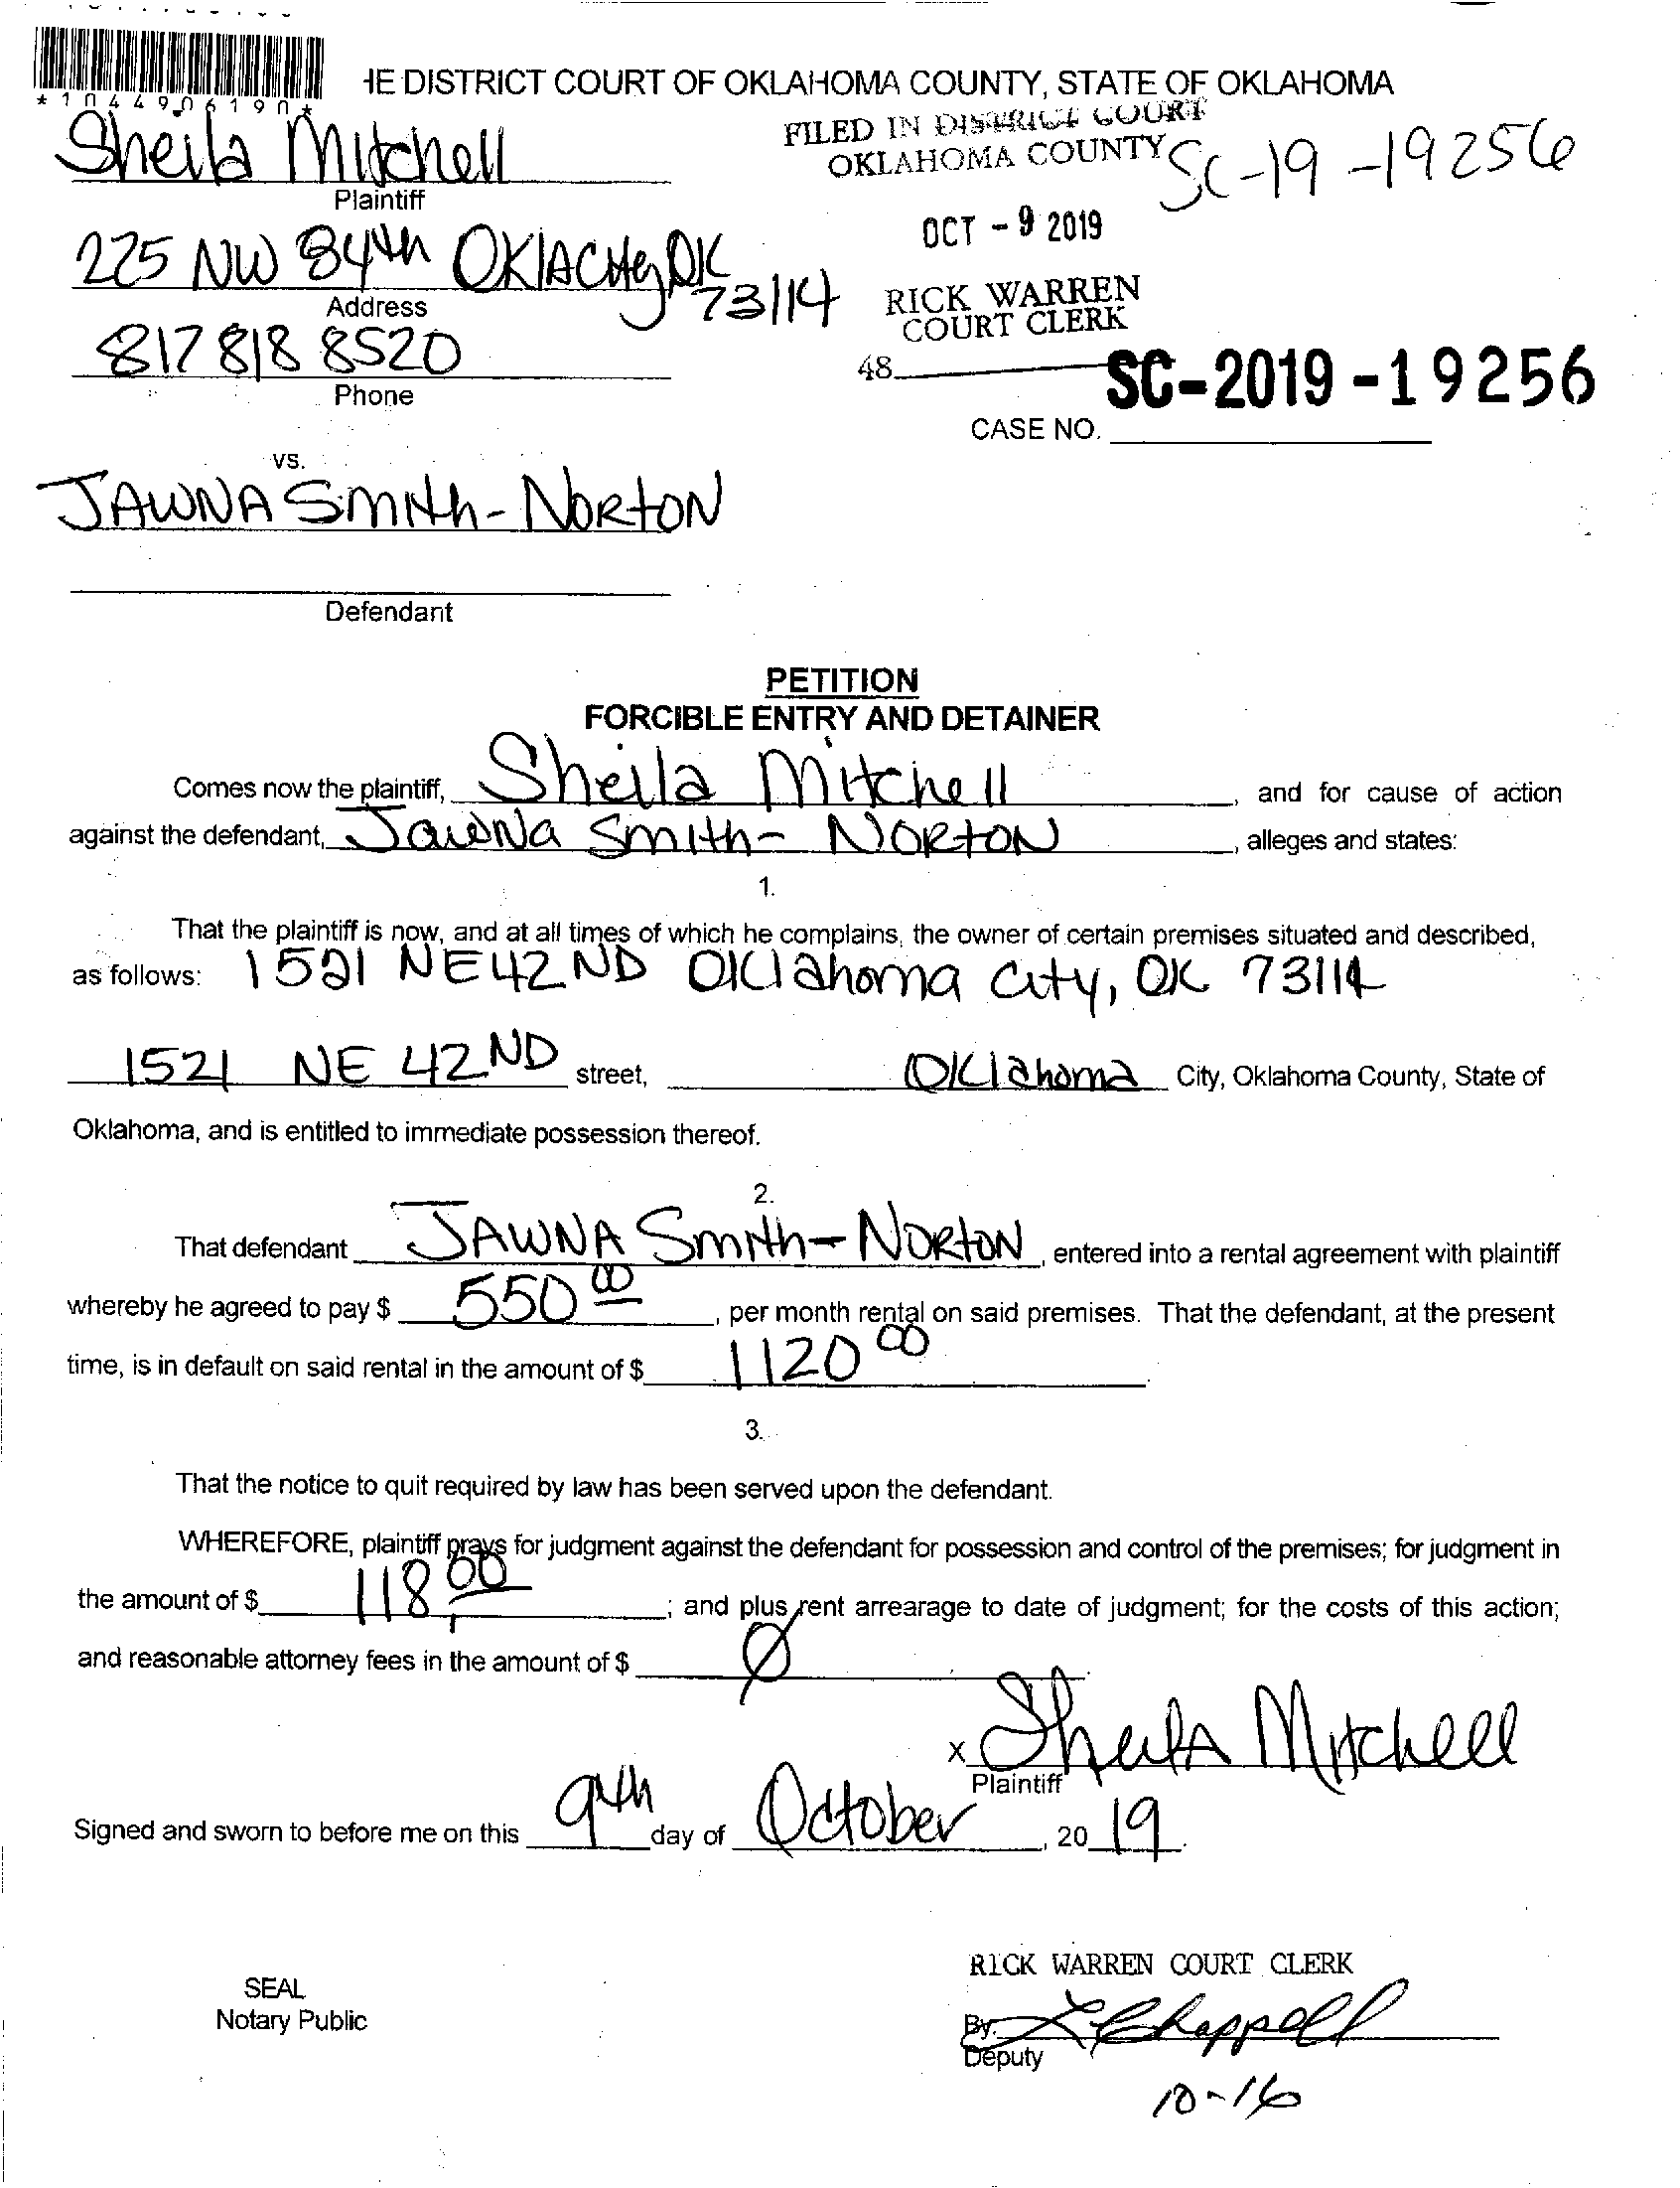 *1044906190*
HE DISTRICT COURT OF OKLAHOMA COUNTY, STATE OF OKLAHOMA
FILED IN DISTRICT COURT
OKLAHOMA COUNTY
SC-19-19256
Sheila Mitchell
Plaintiff
OCT - 9 2019
225 NW 84th OKlACity OK
73114
Address
RICK WARREN
COURT CLERK
817 818 8520
Phone
48
SC-2019-19256
CASE NO.
vs.
JAWNA Smith-NORtON
Defendant
PETITION
FORCIBLE ENTRY AND DETAINER
Comes now the plaintiff, Sheila Mitchell, and for cause of action
against the defendant, Jawna Smith-NORtON, alleges and states:
1.
That the plaintiff is now, and at all times of which he complains, the owner of certain premises situated and described,
as follows: 1521 NE 42ND Oklahoma City, OK 73114
1521 NE 42ND street, Oklahoma City, Oklahoma County, State of
Oklahoma, and is entitled to immediate possession thereof.
2.
That defendant JAWNA Smith-NORtON, entered into a rental agreement with plaintiff
whereby he agreed to pay $ 550 00, per month rental on said premises. That the defendant, at the present
time, is in default on said rental in the amount of $ 1120 00.
3.
That the notice to quit required by law has been served upon the defendant.
WHEREFORE, plaintiff prays for judgment against the defendant for possession and control of the premises; for judgment in
the amount of $ 118.00; and plus rent arrearage to date of judgment; for the costs of this action;
and reasonable attorney fees in the amount of $ Ø.
x Sheila Mitchell
Plaintiff
Signed and sworn to before me on this 9th day of October, 20 19.
RICK WARREN COURT CLERK
SEAL
Notary Public
By: L Chappell
Deputy
10-16